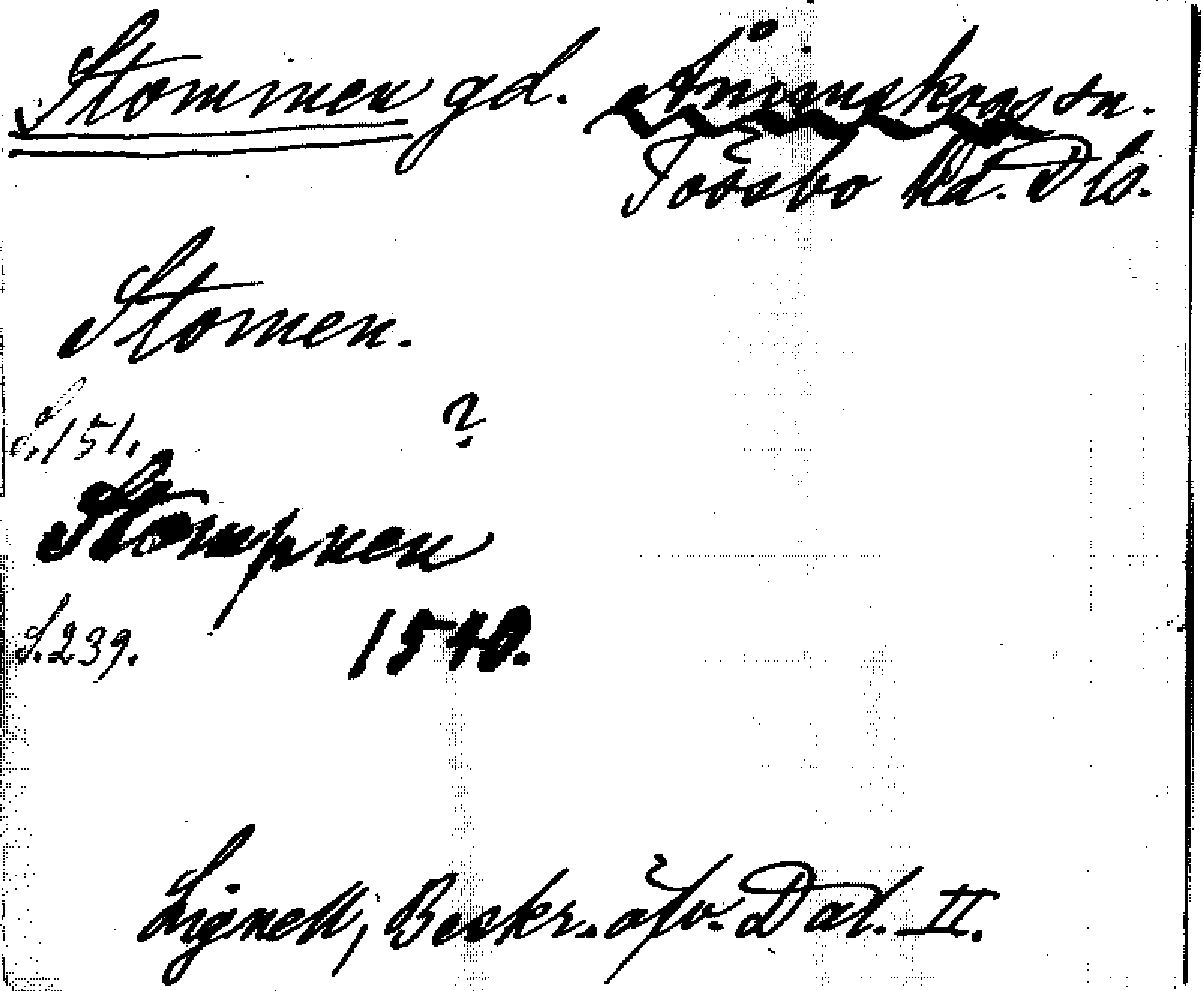 Stommen gd. Ånimskogs sn.
Tössbo hd. Dls.
Stomen.
S. 151. ?
Stompnen
S. 239. 1540.
Lignell, Beskr. öfv. Dal. II.